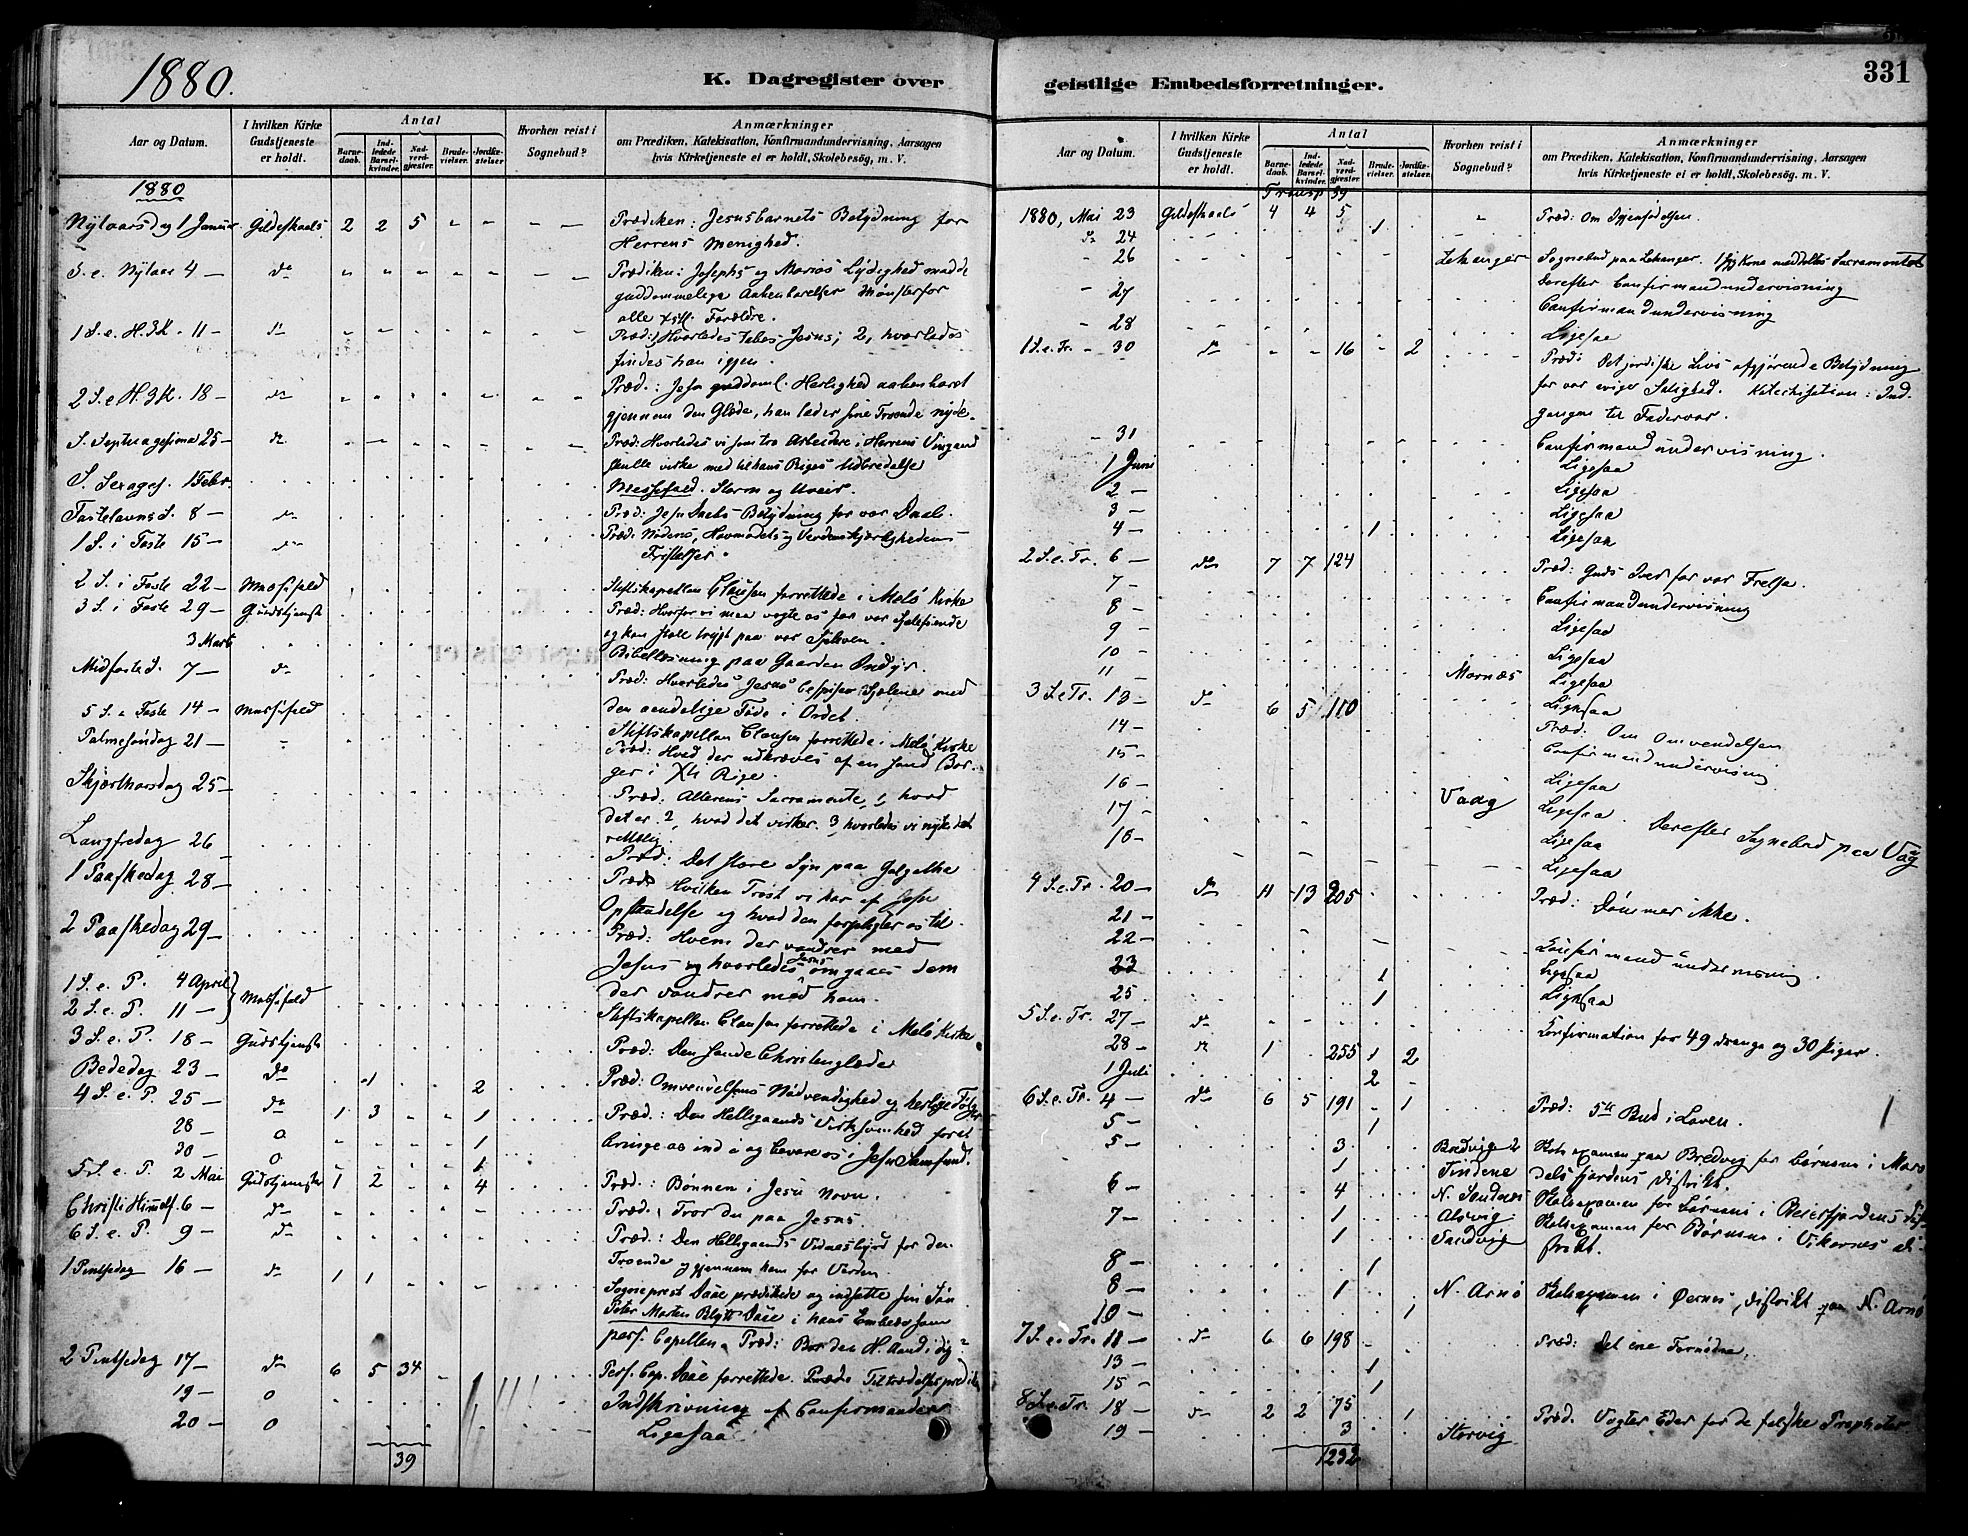 1880.
K. Dagregister over
geistlige Embedsforretninger.
331
Aar og Datum.
I hvilken Kirke Gudstjeneste er holdt.
Antal
Barnedaab.
Indledede Barselkvinder.
Nadverdgjæster.
Brudevielser.
Jordfæstelser.
Hvorhen reist i Sognebud?
Anmærkninger
om Prædiken, Katekisation, Konfirmandundervisning, Aarsagen
hvis Kirketjeneste ei er holdt, Skolebesög, m. V.
1880
Nytaarsdag 1 Januar Gildeskaals 2 2 5 Prædiken: Jesusbarnets Betydning for
Herrens Menighed.
S. e. Nytaar 4 — do Prædiken: Josephs og Marias Lydighed mod de
guddommelige Aabenbarelser Mønster for
alle Forældre.
1 S. e. H. 3 K. 11 — do Præd: 1, Hvorledes tabes Jesus; 2, hvorledes
findes han igjen.
2 S. e. H. 3 K. 18 — do Præd.: Jesu guddoml. Herlighed aabenbaret
gjennem den Glæde, han lader sine Troende nyde.
S. Septuagesima 25 — do Præd: Hvorledes vi som tro Arbeidere i Herrens Vingaard
skulle virke med til hans Riges Udbredelse
S. Sexages. 1 Febr. Messefald. Storm og Uveir.
Fastelavns S. 8 — do Præd: Jesu Daabs Betydning for vor Daab.
1 S. i Faste 15 — do Præd: Nødens, Hovmodets og Verdenskjærlighedens
Fristelser.
2 S. i Faste 22 — Messefald Stiftskapellan Clausen forrettede i Melø Kirke
3 S. i Faste 29 — Gudstjeneste Præd: Hvorfor vi maa vogte os for vor Sjælefiende
og kun stole trygt paa vor
3 Marts Bibellæsning paa Gaarden Indyr.
Midfaste S. 7 — do Præd: Hvorledes Jesus bespiser Sjælene med
den aandelige Føde i Ordet.
5 S. i Faste 14 — Messefald Stiftskapellan Clausen forrettede i Melø Kirke
Palmesöndag 21 — Præd: Hvad der udkræves af en sand Borger
i Rige.
Skjærthorsdag 25 — Præd: Alterens Sacramente, 1, hvad
det er. 2, hvad det virker. 3, hvorledes vi nyde det
rettelig.
Langfredag 26 Præd: Det store Syn paa Golgatha
1 Paaskedag 28 — Præd: Hvilken Trøst vi har af Jesu
Opstandelse og hvad den forpligter os til.
2 Paaskedag 29 — Præd: Hvem der vandrer med
Jesus og hvorledes Jesus omgaaes dem
der vandrer med ham.
1 S. e. P. 4 April
2 S. e. P. 11 — Messefald Stiftskapellan Clausen forrettede i Melø Kirke
3 S. e. P. 18 — Gudstjeneste Præd: Den sande Christenglæde
Bededag 23 — do 1 2 Præd: Omvendelsens Nødvendighed og herlige Følger
4 S. e. P. 25 — do 1 3 1 Præd.: Den Helligaands Virksomhed for at
28 — 0 1 bringe os ind i og bevare os i Jesu Samfund.
30 — 0 1
5 S. e. P. 2 Mai Gudstjeneste 1 2 4 Præd.: Bønnen i Jesu Navn.
Christi Himmelf. 6 — do Præd.: Tror du paa Jesus.
6 S. e. P. 9 — do Præd.: Den Helligaands Vidnesbyrd for de
Troende og gjennem ham for Verden.
1 Pintsedag 16 — do 1 1 Sogneprest Daae prædikede og indsatte sin Søn
Peter Morten Blytt Daae i hans Embede som
pers. Capellan. Præd: Bor den H. Aand i dig?
2 Pintsedag 17 — do 6 5 34 Pers. Cap. Daae forrettede. Præd: Tiltrædelsespræd
19 — 0 Indskrivning af Confirmander
20 — 0 Ligesaa
39
Aar og Datum.
I hvilken Kirke Gudstjeneste er holdt.
Antal
Barnedaab.
Indledede Barselkvinder.
Nadverdgjæster.
Brudevielser.
Jordfæstelser.
Hvorhen reist i Sognebud?
Anmærkninger
om Prædiken, Katekisation, Konfirmandundervisning, Aarsagen
hvis Kirketjeneste ei er holdt, Skolebesög. m. V.
Transp 39
1880, Mai 23 Gildeskaals 4 4 5 Præd: Om Igjenfødelsen.
do 24 1
26 Lekanger Sognebud paa Lekanger. 1 syg Kone meddeltes Sacramentet
Derefter Confirmandundervisning
27 Confirmandundervisning
28 Ligesaa
1 S. e. Tr. 30 do 16 2 Præd: Det jordiske Livs afgjørende Betydning
for vor evige Salighed. Katechisation: Ind
gangen til Fadervor.
31 Confirmandundervisning.
1 Juni Ligesaa
2 — Ligesaa
3 — Ligesaa
4 — 1 Ligesaa
2 S. e. Tr. 6 — do 7 7 124 Præd: Guds Iver for vor Frelse.
7 — Confirmandundervisning
8 — Ligesaa
9 — Ligesaa
10 — Ligesaa
11 — Mornæs Ligesaa
3 S. e. Tr. 13 — do 6 5 110 Præd: Om Omvendelsen
14 — Confirmandundervisning
15 — Ligesaa
16 — Vaag Ligesaa. Derefter Sognebud paa Vaag
17 — Ligesaa
18 — Ligesaa
4 S. e. Tr. 20 — do 11 13 205 Præd: Dømmer ikke.
21 —
22 — Confirmandundervisning.
23 1 Ligesaa
25 1 Ligesaa
5 S. e. Tr. 27 — do Confirmation for 49 Drenge og 30 Piger.
28 — do 1 255 1 2
1 Juli 2
6 S. e. Tr. 4 — do 6 5 191 1 Præd: 5te Bud i Loven.
5 — 1
5 — 3 Bredvig Skoleexamen paa Bredvig for Børnene i Mors
1 Tindene dalsfjordens Distrikt.
6 — 4 N. Sandnæs Skoleexamen for Børnene i Beierfjordens Di
7 — 1 Alsvig Skoleexamen for Børnene i Vikornes di-
1 Sandvig strikt.
8 — 1
8 — 1 N. Arnø Skoleexamen i Øernes Distrikt paa N. Arnø
10 — 1
7 S. e. Tr. 11 — do 6 6 198 Præd: Det ene Fornødne.
13 — 1
15 — 1
8 S. e. Tr. 18 — do 2 2 75 1 Præd. Vogter Eder for de falske Propheter
19 — 3 Storvig
1232